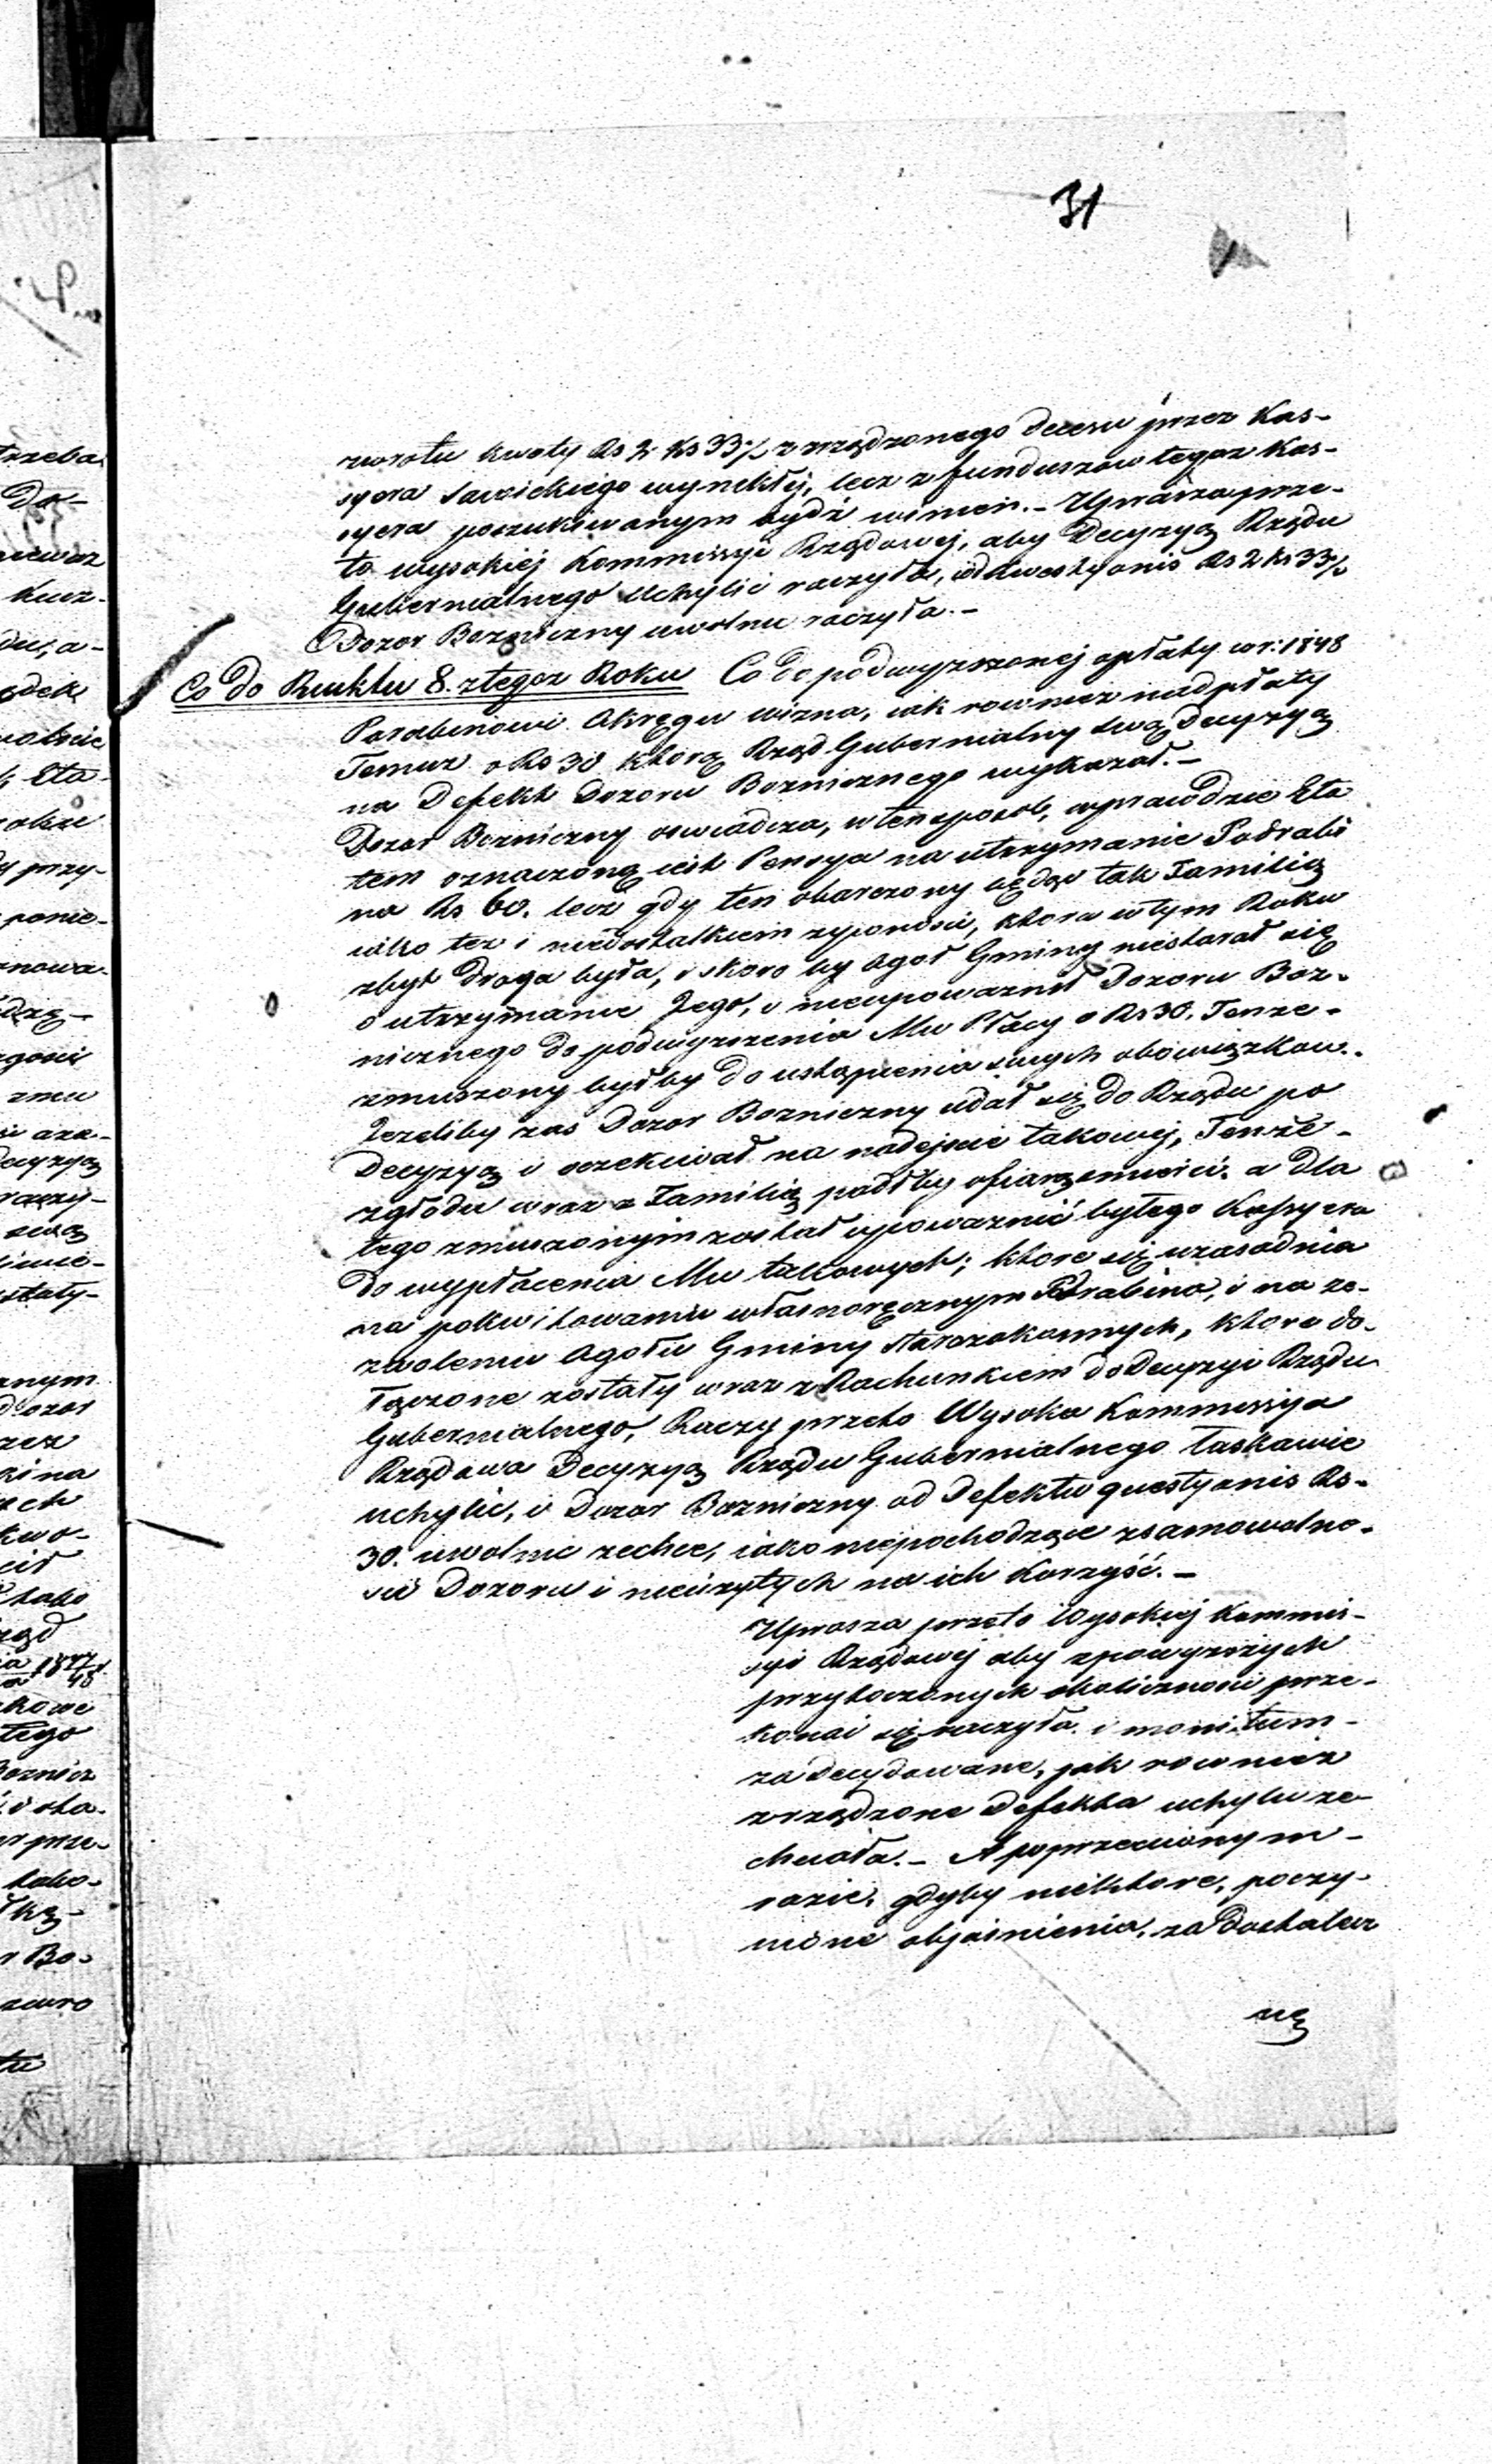 31
zwrotu kwoty Rs 2 ks 33½ zrządzonego decesu przez Kas-
syera Sawickiego wynikłéj, lecz z funduszow tegoz Kas-
syera poszukiwanym bydź winien. – Uprasza prze-
to wysokiéj Kommissyi Rządowej, aby Decyzyą Rządu
Gubernialnego uchylić raczyła, od kwestyonis Rs 2 ks 33½
Dozor Bozniczny uwolnic raczyła. –
Co do Punktu 8. ztegoz Roku Co do podwyzszonej opłaty w r: 1848
Podrabinowi Okręgu Wizna, iak rowniez nadpłaty
Temuz o Rs 30 którą Rząd Gubernialny swą decyzyą
na Defekt Dozoru Bozniczego wykazał. –
Dozor Bozniczny oswiadcza, w ten sposob, wprawdzie Eta
tem oznaczoną iest Pensya na utrzymanie Podrabi
na Rs 60. lecz gdy ten obarczony będąc tak Familią
iako tez i niedostatkiem zywnosci, ktora w tym Roku
zbyt droga była, i skoro by ogoł Gminy niestarał się
o utrzymanie Jego, i nieupowaznił Dozoru Boz-
nicznego do podwyzszenia Mu Płacy o Rs 30. Tenze -
zmuszony byłby do ustąpienia swych obowiązkow. -
Jezeliby zas Dozor Bozniczny udał się do Rządu po
Decyzyą i oczekiwał na nadejscie takowej, Tenże -
zgłodu wraz z Familią padłby ofiarą smierci. a dla
tego zmuszonym został upowaznić byłego Kassyera
do wypłacenia Mu takowych; ktore się uzasadnia
na pokwitowaniu własnoręcznym Podrabina, i na ze-
zwoleniu Ogołu Gminy Starozakonnych, ktore do-
łączone zostały wraz z Rachunkiem do Decyzyi Rządu
Gubernialnego, Raczy przeto Wysoka Kommissya
Rządowa Decyzyą Rządu Gubernialnego łaskawie
uchylić, i Dozor Bozniczny od Defektu questyonis Rs -
30. uwolnic zechce, iako niepochodzące zsamowolno-
sci Dozoru i nieuzytych na ich Korzyść. –
Uprasza przeto Wysokiej Kommis-
syi Rządowej aby zpowyzszych
przytoczonych okolicznosci prze-
konać się raczyła i monitum -
zadecydowane, jak rowniez
zrządzone Defekta uchylic ze-
chciała. – A poprzeciwnym -
razie, gdyby niektore, poczy-
nione objasnienia, za dostatecz
ną